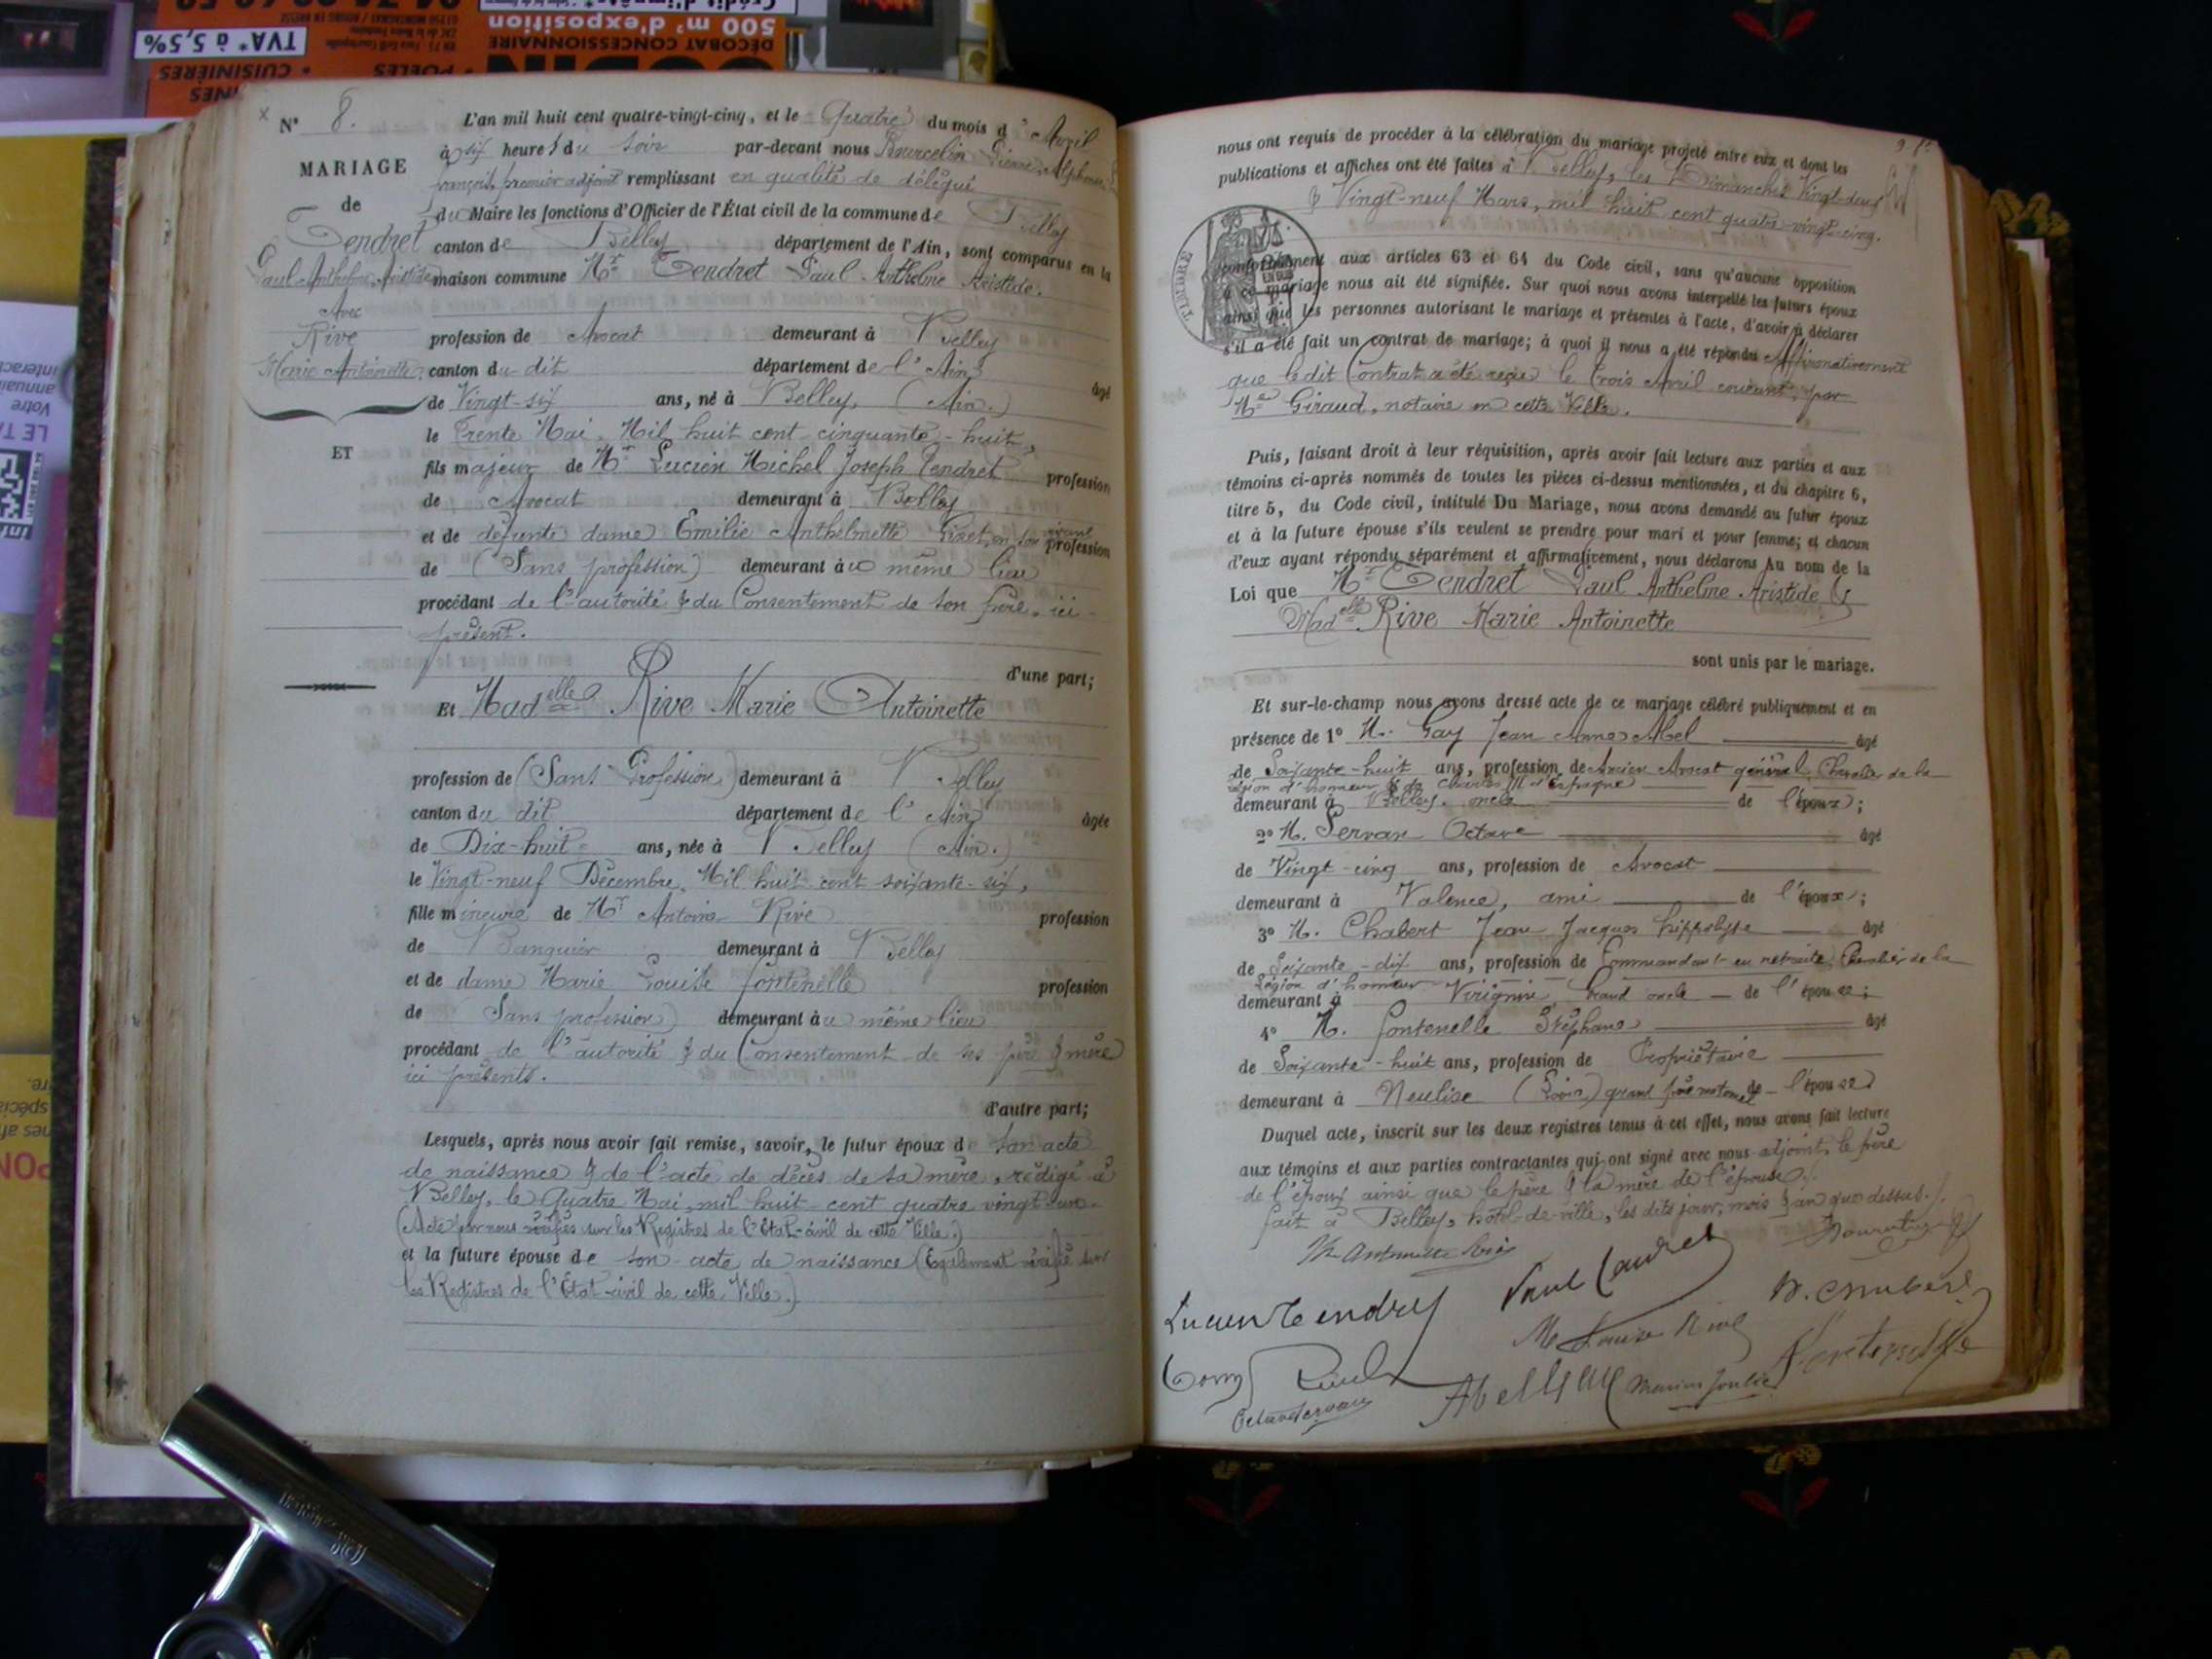 N° 8.
MARIAGE
de
Tendret
Paul Anthelme Aristide
Avec
Rive
Marie Antoinette
ET
L'an mil huit cent quatre-vingt-cinq, et le Quatre du mois d'Avril
à six heures du soir par-devant nous Bourcelin Pierre Alphonse
françois, premier adjoint remplissant en qualité de délégué
du Maire les fonctions d'Officier de l'État civil de la commune de Belley
canton de Belley département de l'Ain, sont comparus en la
maison commune Mr Tendret Paul Anthelme Aristide.
profession de Avocat demeurant à Belley
canton du dit département de l'Ain âgé
de Vingt-six ans, né à Belley, (Ain.)
le Trente Mai, Mil huit cent cinquante-huit,
fils majeur de Mr Lucien Michel Joseph Tendret profession
de Avocat demeurant à Belley
et de défunte dame Emilie Anthelmette en son vivant profession
de (Sans profession) demeurant au même lieu
procédant de l'autorité & du Consentement de son père, ici
présent.
d'une part;
Et Madelle Rive Marie Antoinette
profession de (Sans Profession) demeurant à Belley
canton du dit département de l'Ain âgée
de Dix-huit ans, née à Belley (Ain.)
le Vingt-neuf Décembre, Mil huit cent soixante-six,
fille mineure de Mr Antoine Rive profession
de Banquier demeurant à Belley
et de dame Marie Louise fontenelle profession
de Sans profession) demeurant au même lieu
procédant de l'autorité & du Consentement de ses père & mère
ici présents.
d'autre part;
Lesquels, après nous avoir fait remise, savoir, le futur époux de son acte
de naissance & de l'acte de décès de sa mère, rédigé à
Belley, le Quatre Mai, mil huit cent quatre vingt-un.
(Actes par nous vérifiés sur les Registres de l'État-civil de cette Ville.)
et la future épouse de son acte de naissance (Également vérifié sur
les Registres de l'État-civil de cette Ville.)
nous ont requis de procéder à la célébration du mariage projeté entre eux et dont les
publications et affiches ont été faites à Belley, les Dimanches Vingt-deux
& Vingt-neuf Mars, mil huit cent quatre-vingt-cinq.
TIMBRE
conformément aux articles 63 et 64 du Code civil, sans qu'aucune opposition
à ce mariage nous ait été signifiée. Sur quoi nous avons interpellé les futurs époux
ainsi que les personnes autorisant le mariage et présentes à l'acte, d'avoir à déclarer
s'il a été fait un contrat de mariage; à quoi il nous a été répondu Affirmativement
que ledit Contrat a été reçu le trois Avril courant, par
Me Giraud, notaire en cette Ville.
Puis, faisant droit à leur réquisition, après avoir fait lecture aux parties et aux
témoins ci-après nommés de toutes les pièces ci-dessus mentionnées, et du chapitre 6,
titre 5, du Code civil, intitulé Du Mariage, nous avons demandé au futur époux
et à la future épouse s'ils veulent se prendre pour mari et pour femme; et chacun
d'eux ayant répondu séparément et affirmativement, nous déclarons Au nom de la
Loi que Mr Tendret Paul Anthelme Aristide &
Madelle Rive Marie Antoinette
sont unis par le mariage.
Et sur-le-champ nous avons dressé acte de ce mariage célébré publiquement et en
présence de 1° M. Gay Jean Anne Abel âgé
de Soixante-huit ans, profession de Ancien Avocat général, Chevalier de la
Légion d'honneur & de Charles III d'Espagne
demeurant à Belley, oncle de l'époux;
2° M. Servan Octave âgé
de Vingt-cinq ans, profession de Avocat
demeurant à Valence, ami de l'époux;
3° M. Chabert Jean Jacques hippolyte âgé
de Soixante-dix ans, profession de Commandant en retraite, Chevalier de la
Légion d'honneur
demeurant à Virignin, Grand oncle de l'épouse;
4° M. Fontenelle Stéphane âgé
de Soixante-huit ans, profession de Propriétaire
demeurant à Neulise (Loire) grand père maternel de l'épouse
Duquel acte, inscrit sur les deux registres tenus à cet effet, nous avons fait lecture
aux témoins et aux parties contractantes qui ont signé avec nous adjoint, le père
de l'époux ainsi que le père & la mère de l'épouse.
fait à Belley, hôtel-de-ville, les dits jour, mois & an que dessus.
M. Antoinette Rive
Lucien Tendret
Paul Tendret
H. Chabert
M. Louise Rive
Octave Servan
Abel Gay
Fontenelle
500 m² d'exposition
DÉCOBAT CONCESSIONNAIRE
TVA* à 5,5%
POÊLES
CUISINIÈRES